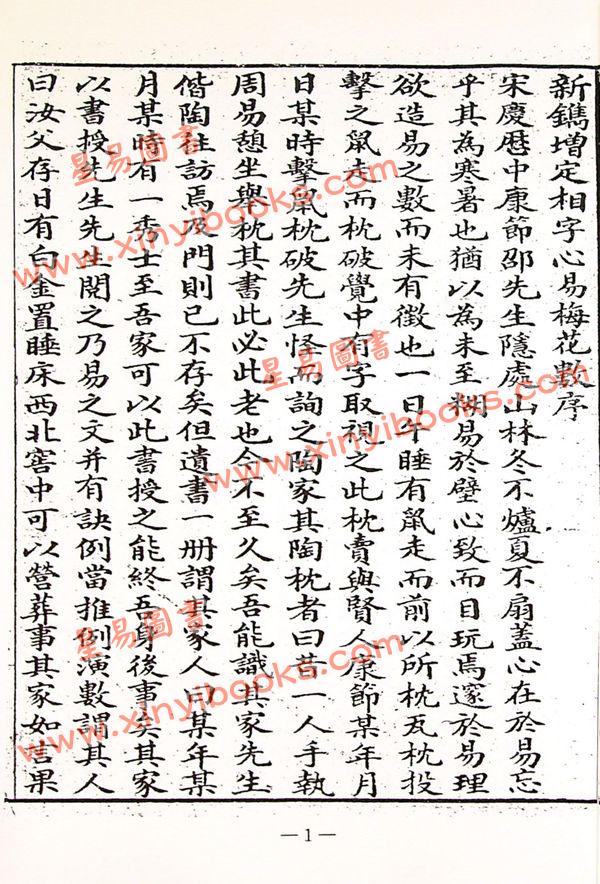 新鐫增定相字心易梅花數序
宋慶曆中康節邵先生隱處山林冬不爐夏不扇蓋心在於易忘
乎其為寒暑也猶以為未至糊易於壁心致而目玩焉邃於易理
欲造易之數而未有徵也一日午睡有鼠走而前以所枕瓦枕投
擊之鼠走而枕破覺中有字取視之此枕賣與賢人康節某年月
日某時擊鼠枕破先生怪而詢之陶家其陶枕者曰昔一人手執
周易憩坐舉枕其書此必此老也今不至久矣吾能識其家先生
偕陶往訪焉及門則已不存矣但遺書一冊謂其家人曰某年某
月某時有一秀士至吾家可以此書授之能終吾身後事矣其家
以書授先生先生閱之乃易之文并有訣例當推例演數謂其人
曰汝父存日有白金置睡床西北窖中可以營葬事其家如言果
星易圖書
www.xinyibooks.com
星易圖書
www.xinyibooks.com
星易圖書
www.xinyibooks.com
—1—